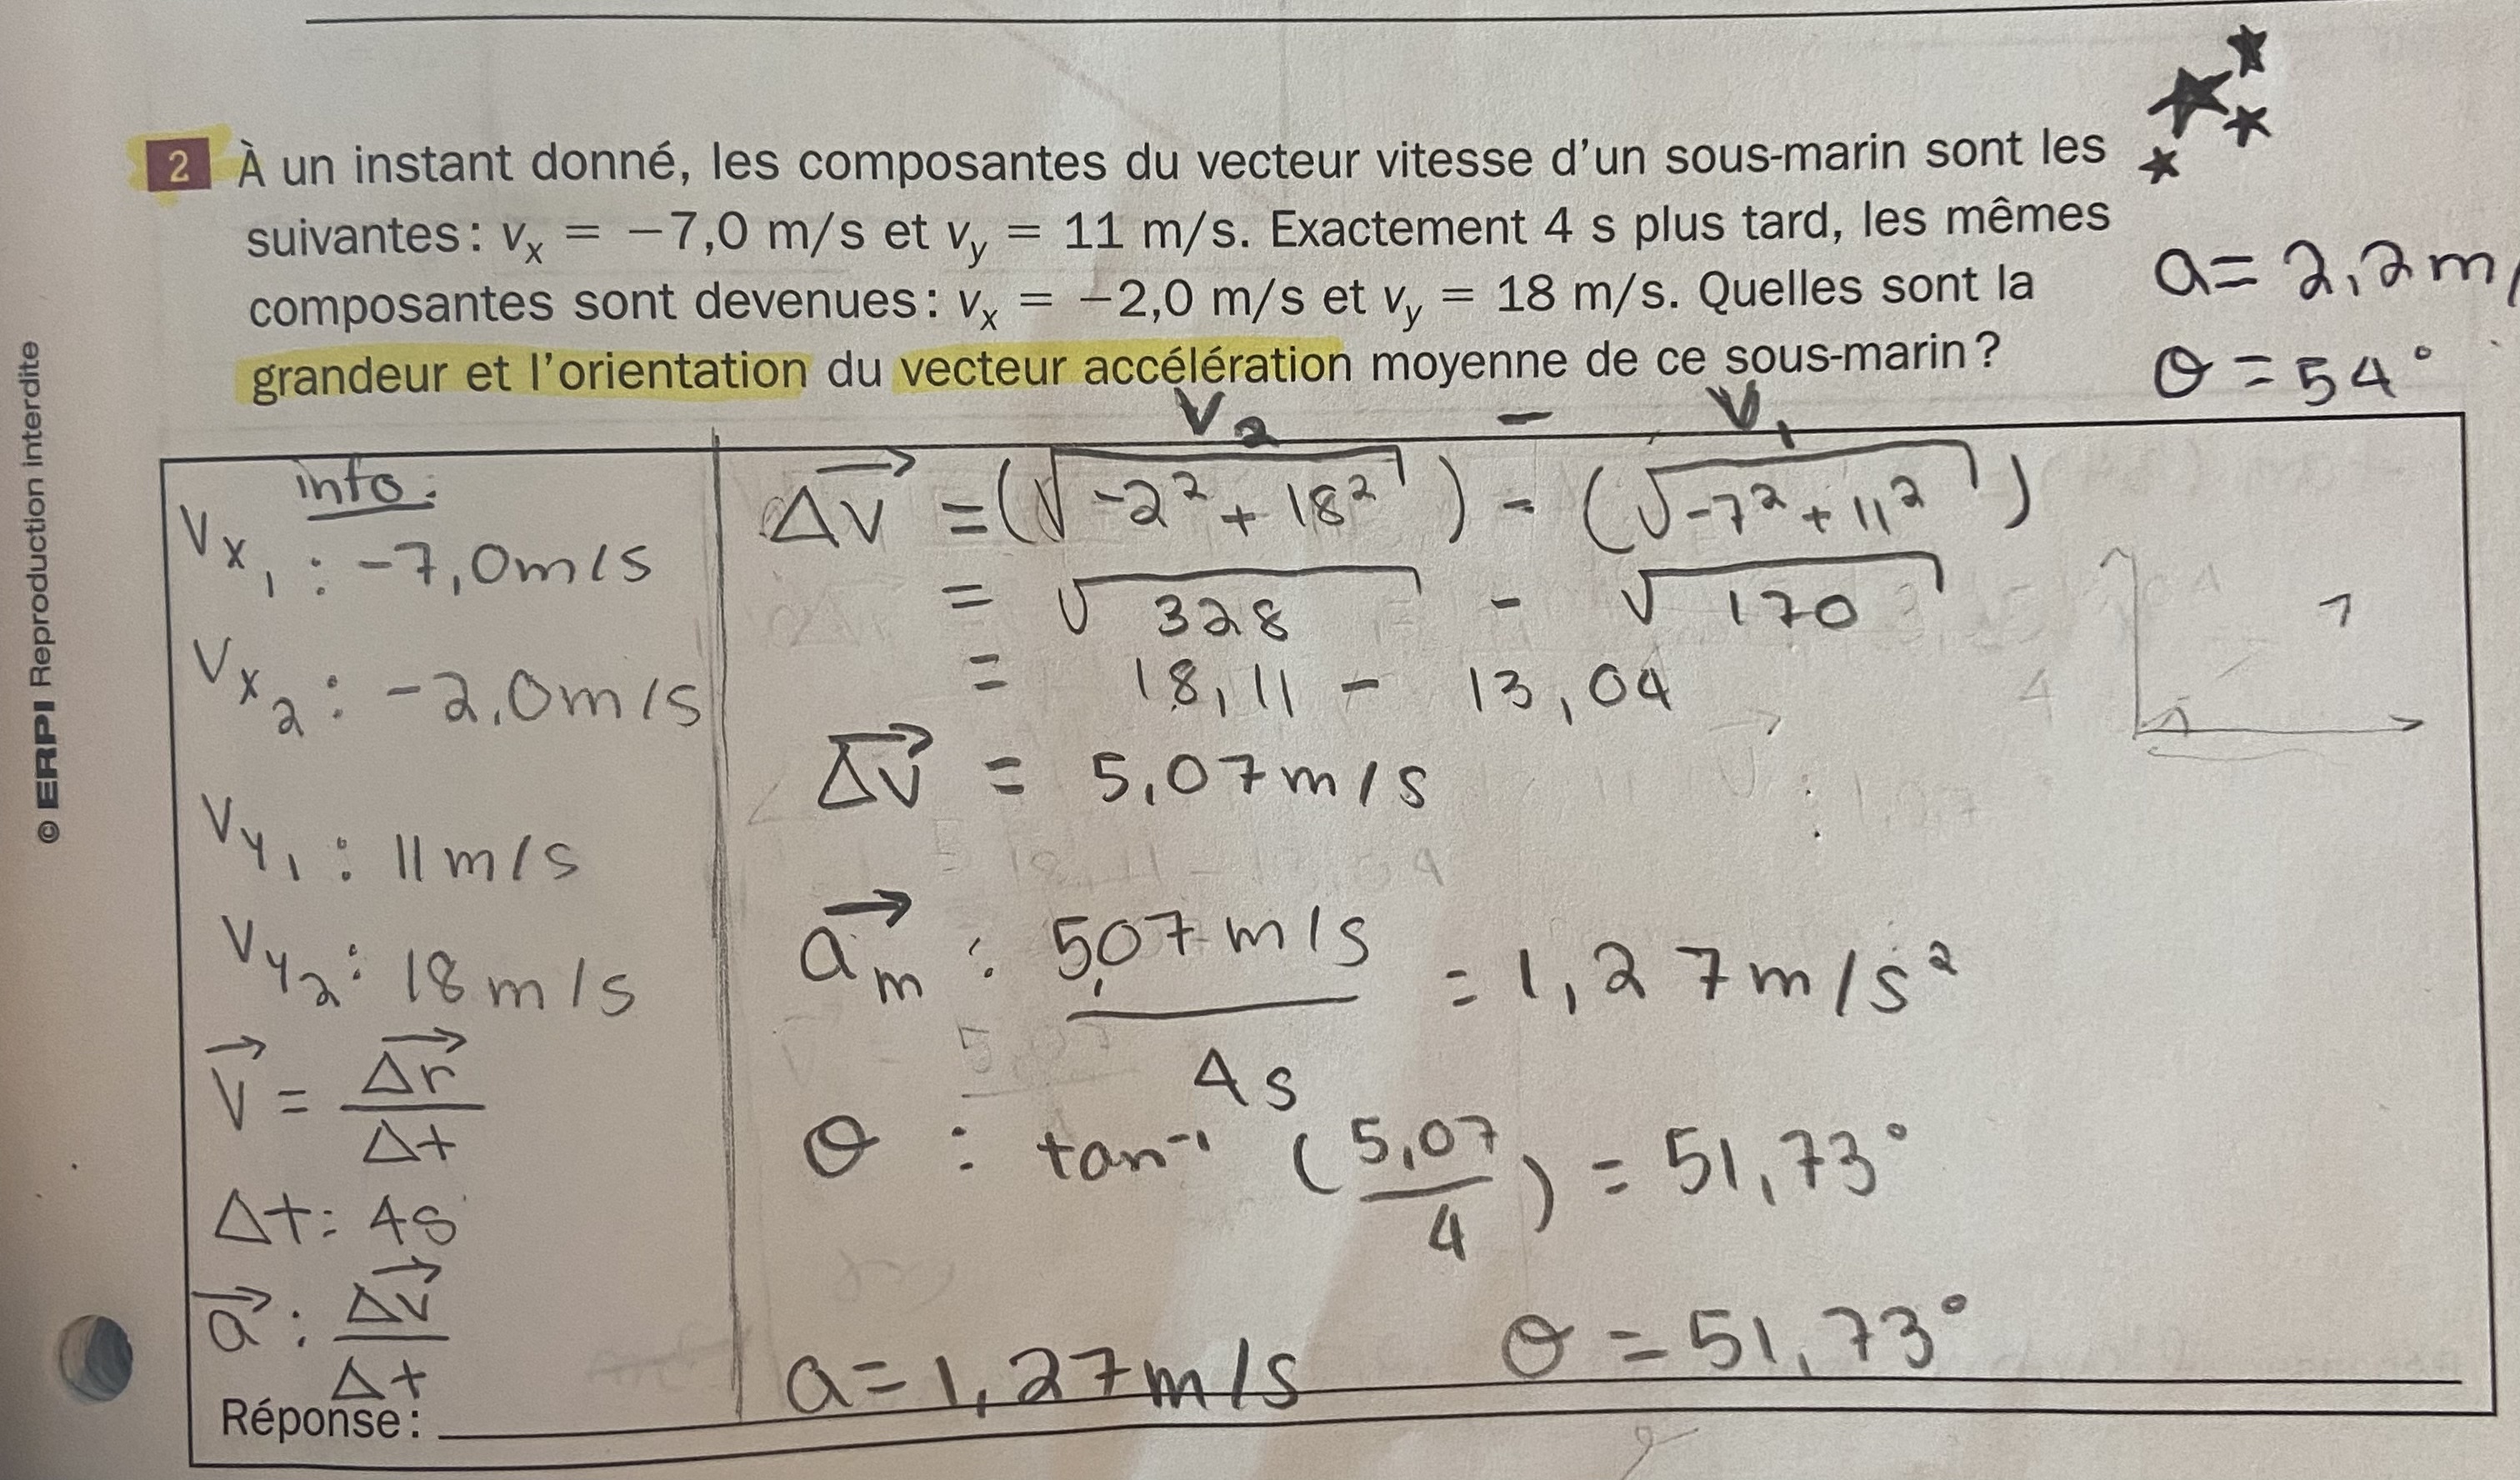 © ERPI Reproduction interdite
2 À un instant donné, les composantes du vecteur vitesse d'un sous-marin sont les
suivantes : vx = −7,0 m/s et vy = 11 m/s. Exactement 4 s plus tard, les mêmes
composantes sont devenues : vx = −2,0 m/s et vy = 18 m/s. Quelles sont la
grandeur et l'orientation du vecteur accélération moyenne de ce sous-marin ?
a = 2,2 m/
θ = 54°
V₂ − V₁
info :
Vx₁ : -7,0 m/s
Vx₂ : -2,0 m/s
Vy₁ : 11 m/s
Vy₂ : 18 m/s
V⃗ = Δr⃗ / Δt
Δt : 4s
a⃗ : Δv⃗ / Δt
Δv⃗ = (√-2² + 18²) - (√-7² + 11²)
= √328 - √170
= 18,11 - 13,04
Δv⃗ = 5,07 m/s
a⃗m : 5,07 m/s / 4s = 1,27 m/s²
θ : tan⁻¹ (5,07 / 4) = 51,73°
a = 1,27 m/s θ = 51,73°
Réponse :